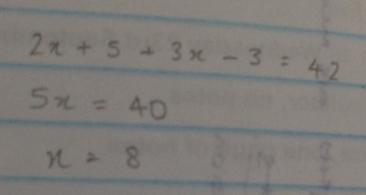 2x + 5 + 3x - 3 = 42
5x = 40
x = 8